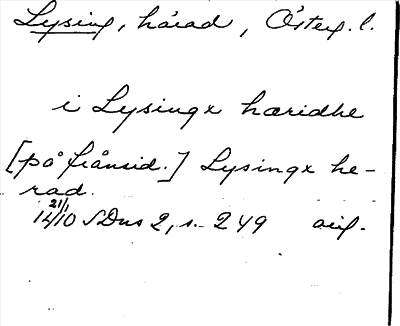 Lysing, härad, Österg. l.
i Lysingx hæridhe
[på frånsid.] Lysingx he-
rad.
21/1
14/10 SDns 2, s. 249 orig.